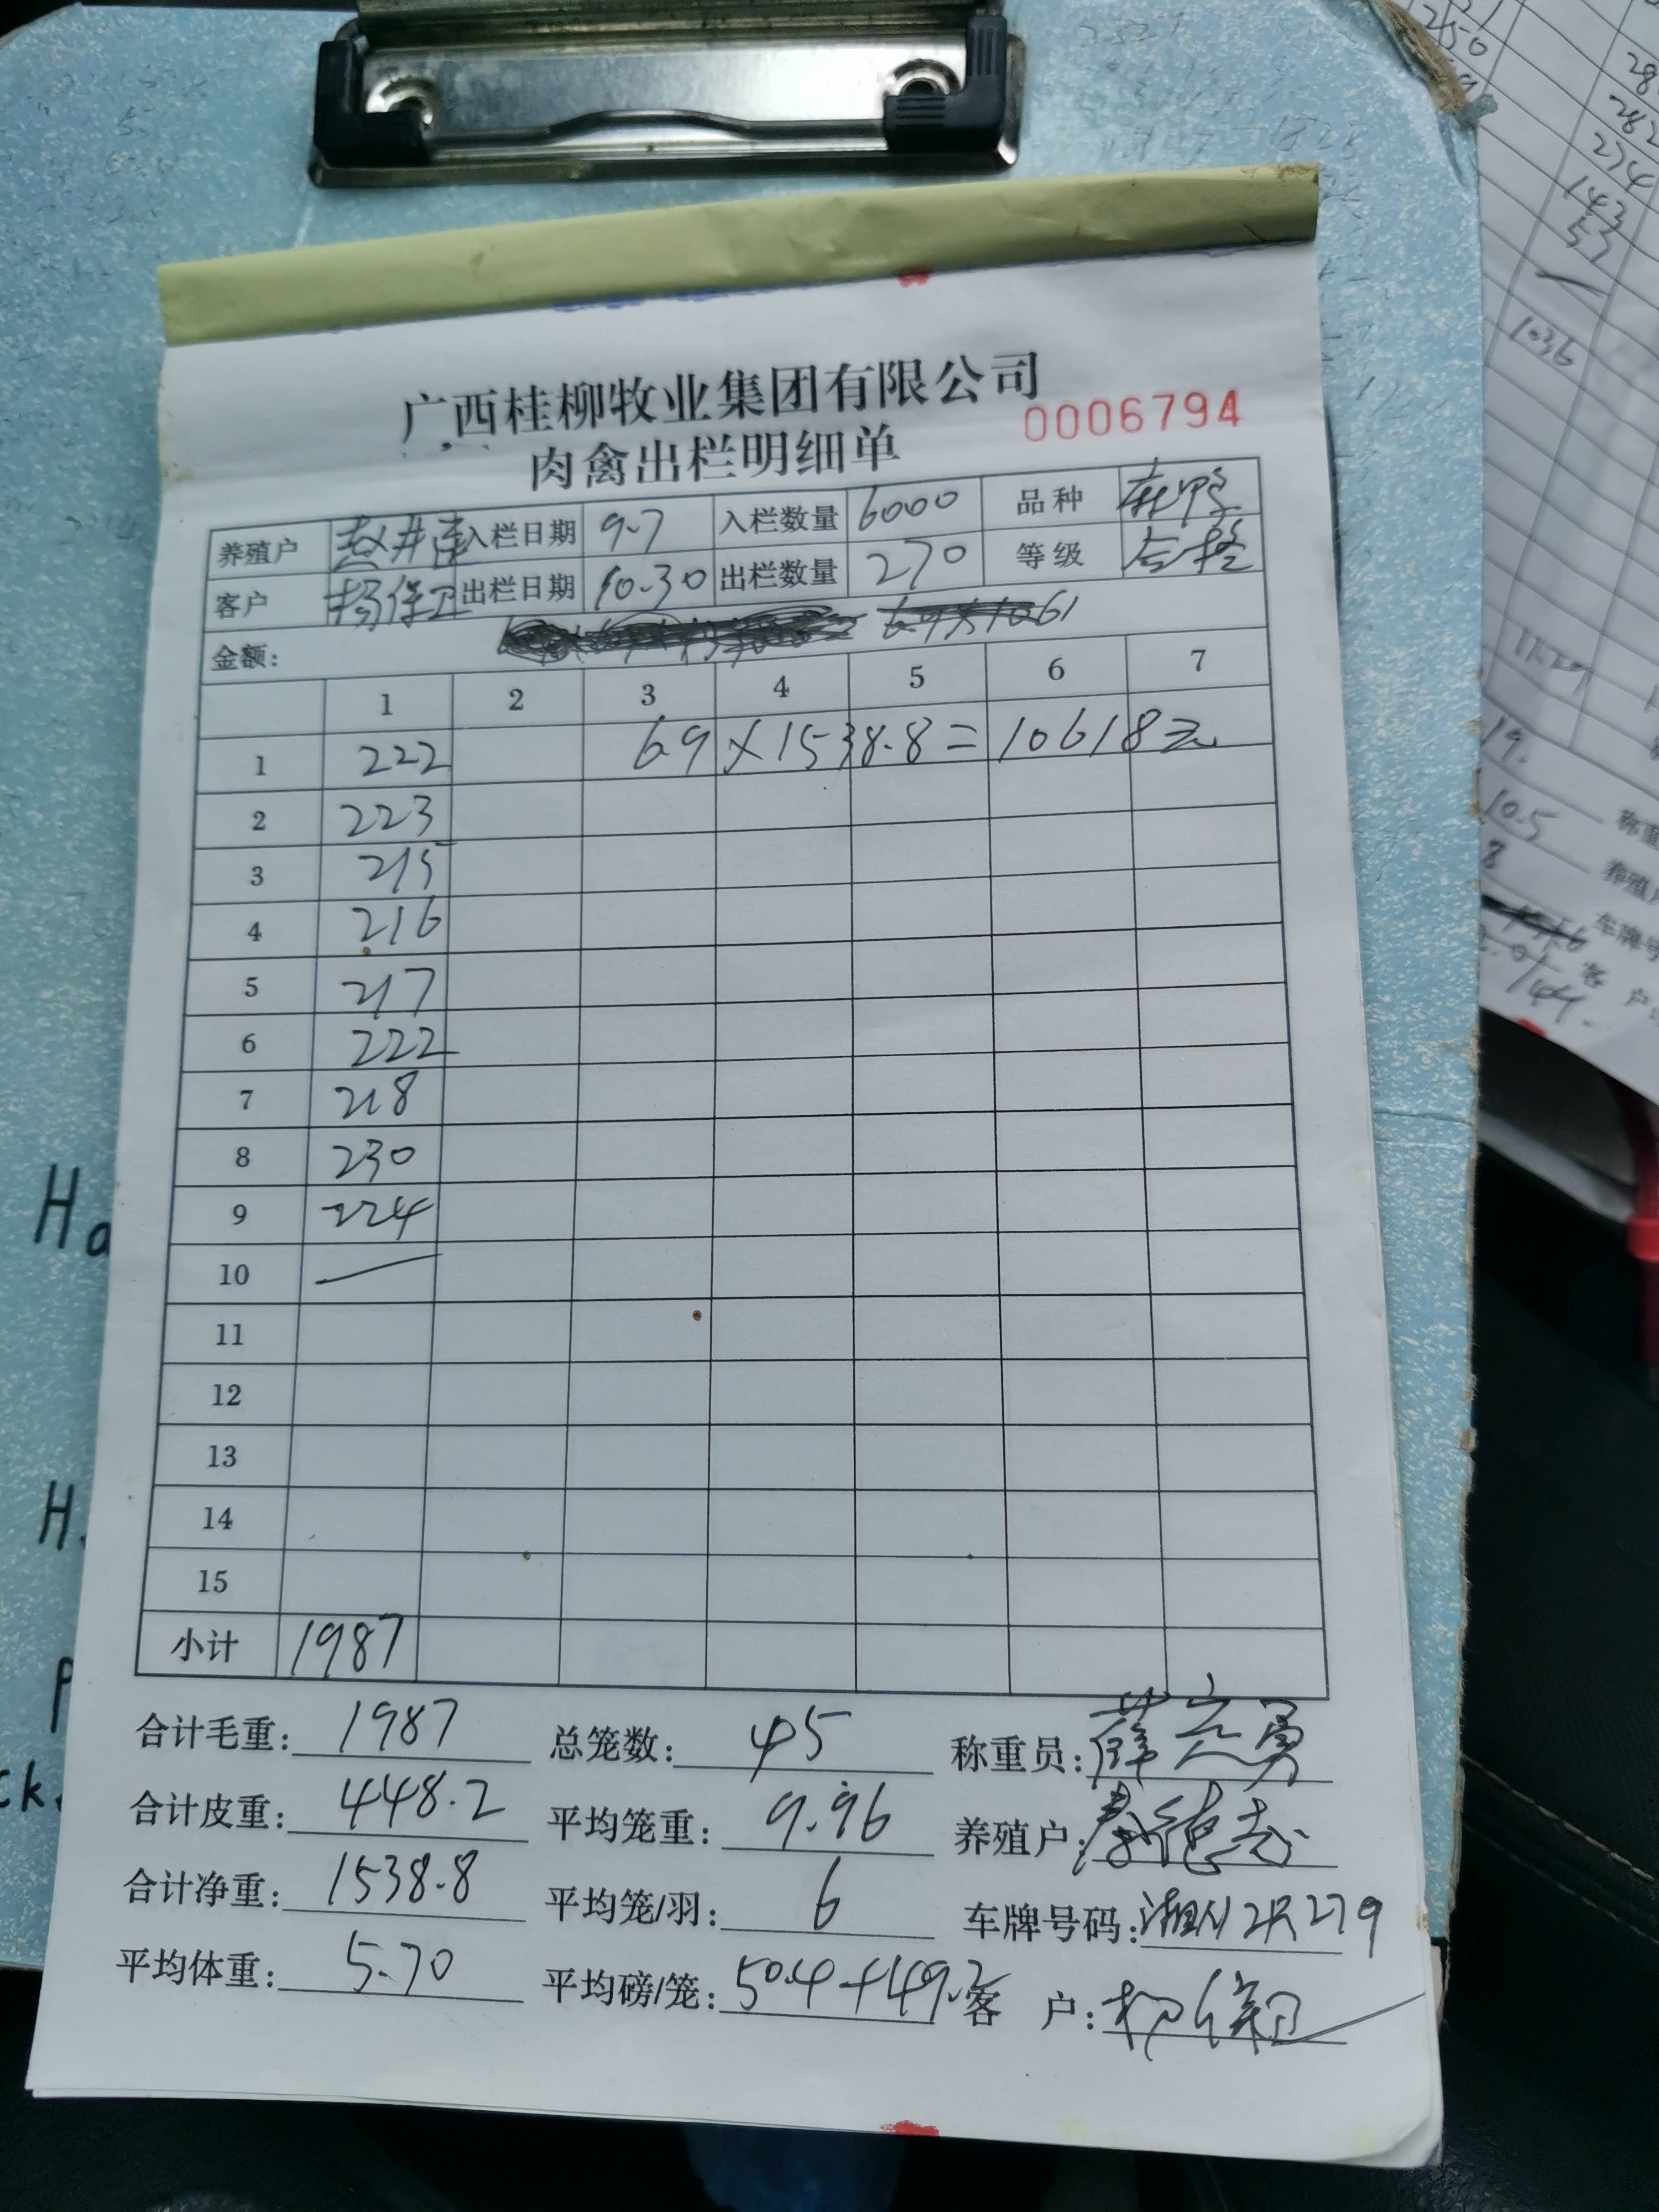 广西桂柳牧业集团有限公司
肉禽出栏明细单 0006794
养殖户 入栏日期 9.7 入栏数量 6000 品种 麻鸭
客户 杨保卫 出栏日期 10.30 出栏数量 270 等级 合格
金额:
1 2 3 4 5 6 7
1 222 6.9×1538.8=10618元
2 223
3 215
4 216
5 217
6 222
7 218
8 230
9 224
10 —
11
12
13
14
15
小计 1987
合计毛重: 1987 总笼数: 45 称重员:
合计皮重: 448.2 平均笼重: 9.96 养殖户:
合计净重: 1538.8 平均笼/羽: 6 车牌号码:
平均体重: 5.70 平均磅/笼: 50.4+49.2 客 户:
250
282
274
143
53
1036
19.
10.5
8
称重
养殖户
车牌号
客 户:
Ha
H
P
ck